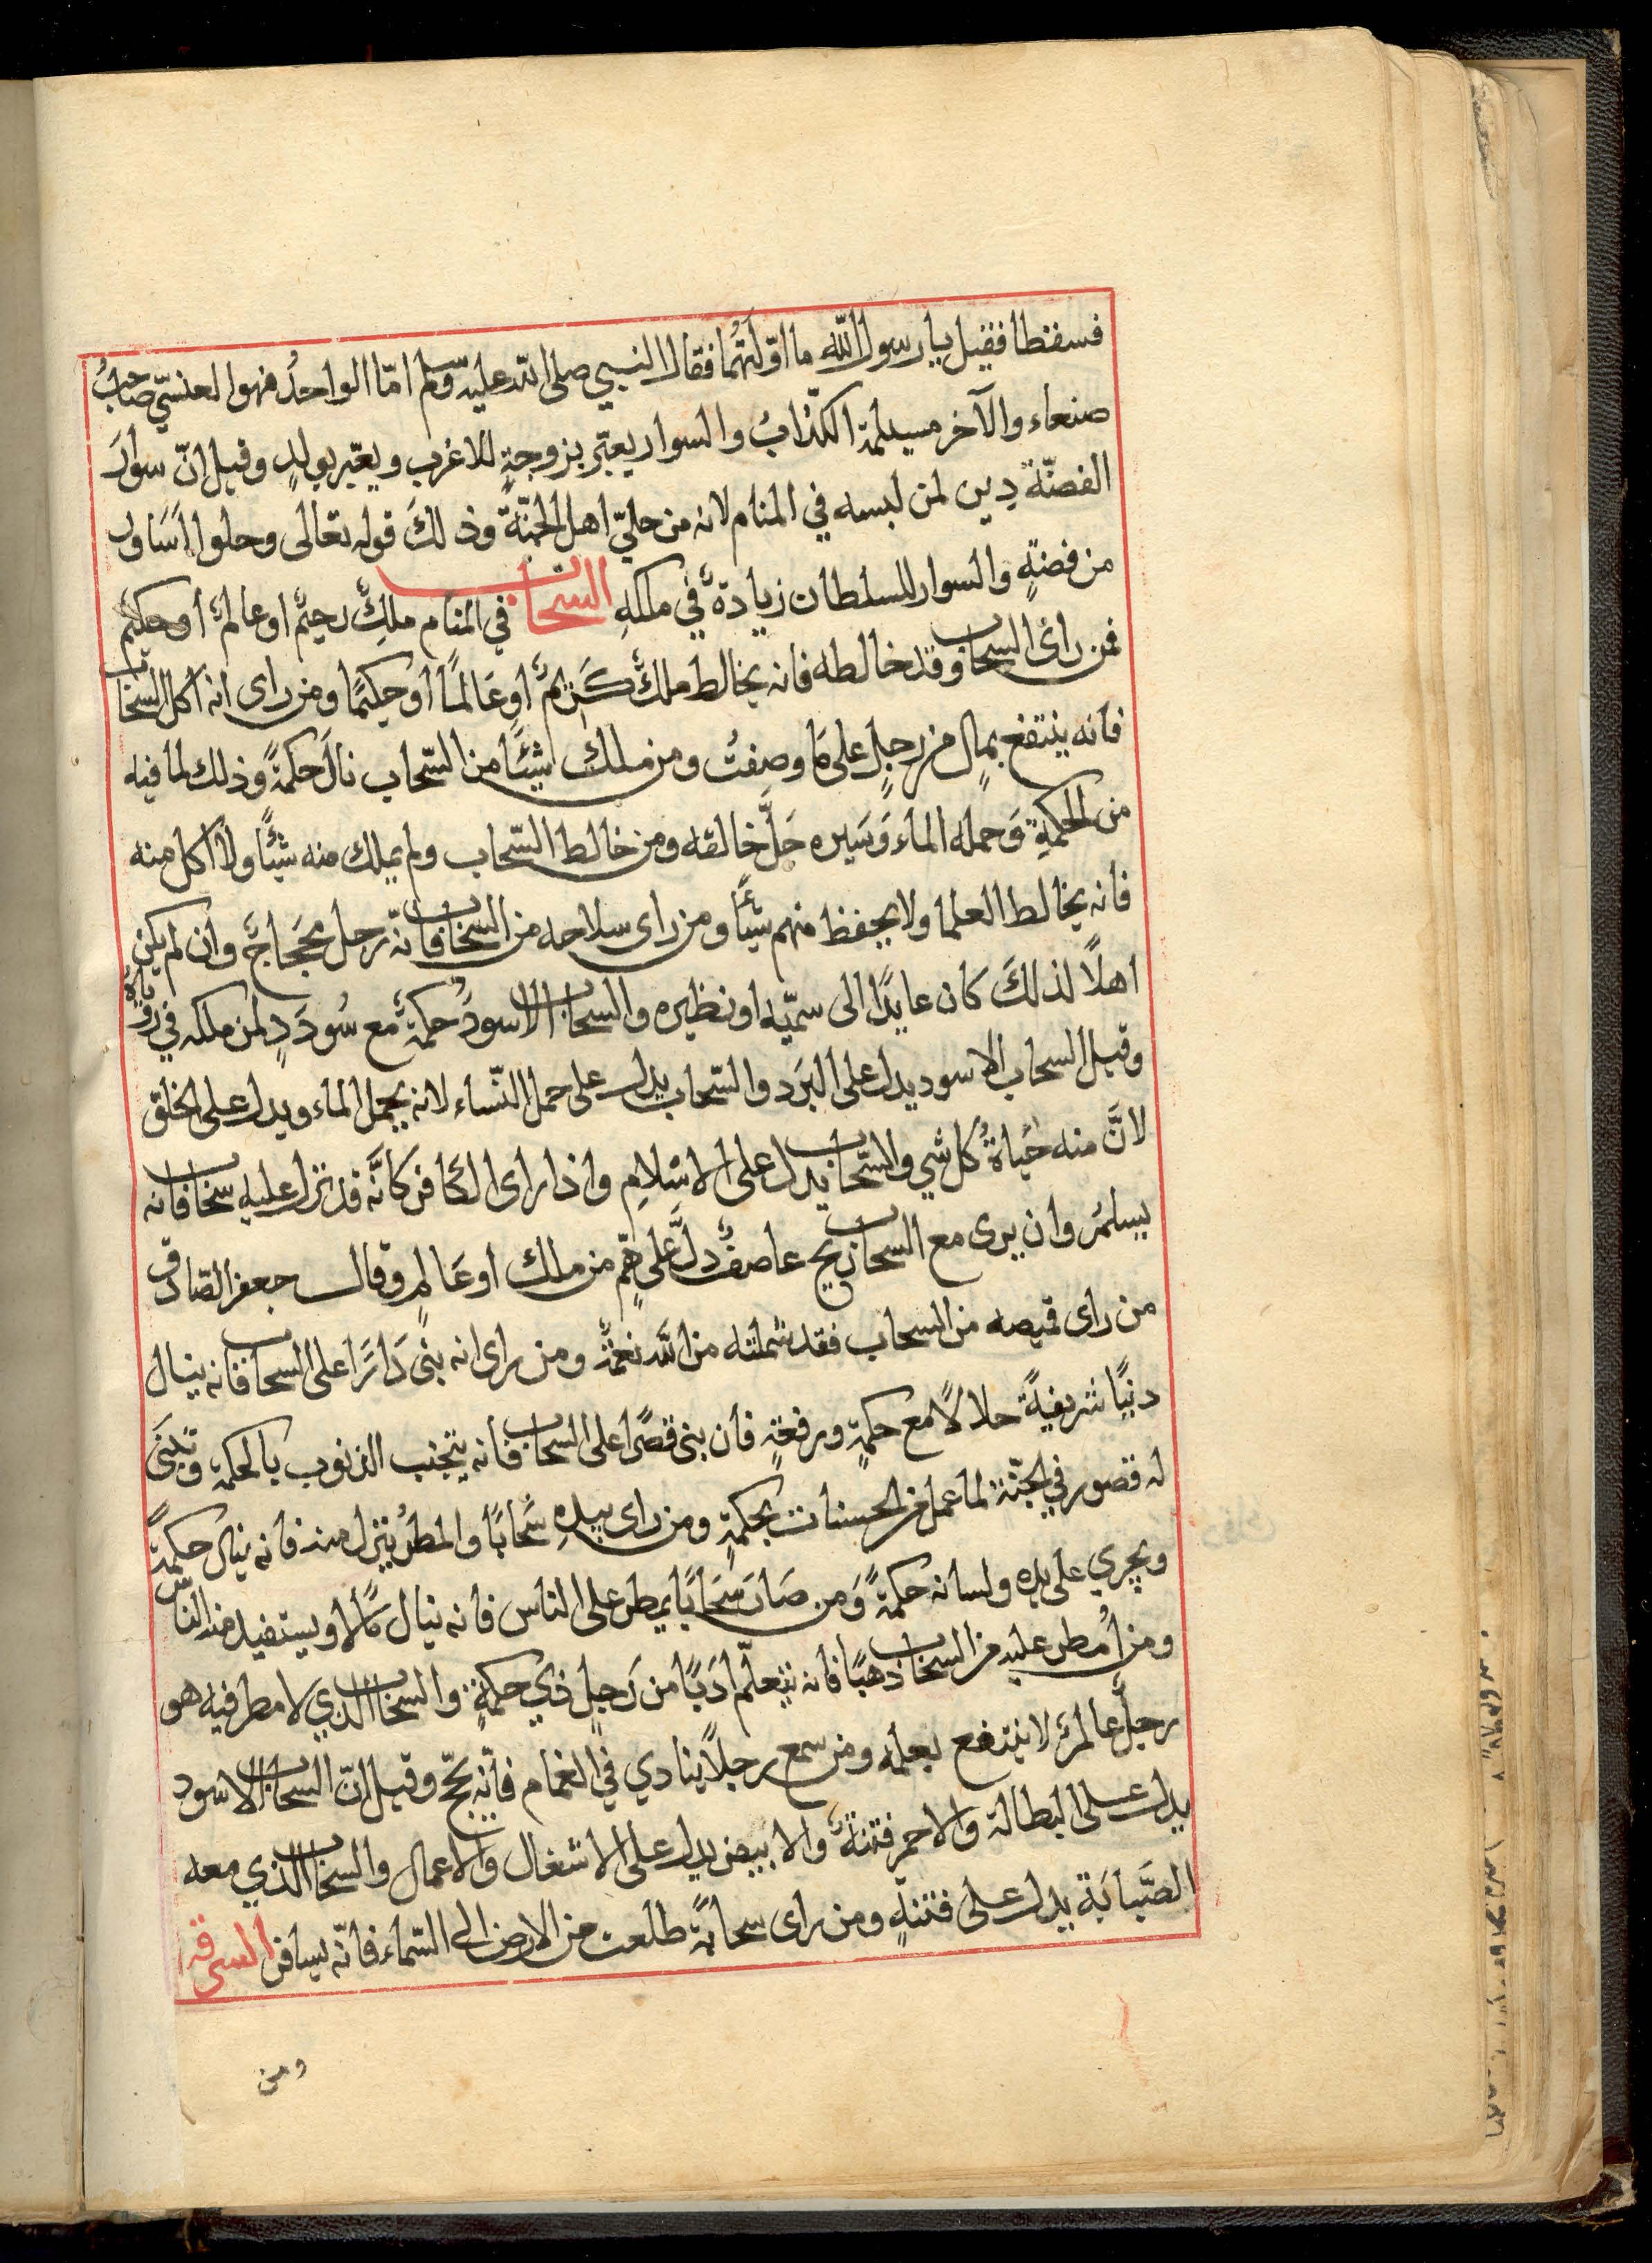 فسقطا فقيل يا رسول الله ما اوّلتهُما فقال النبي صلى الله عليه وسلم امّا الواحدُ فهو العنسيّ صاحبُ
صنعاء والآخر مسيلمة الكذّابُ والسوار يعبّر بزوجةٍ للاعزب ويعبّر بولدٍ وقيل انّ سوارَ
الفضّة دين لمن لبسه في المنام لانه من حليّ اهل الجنّة وذلكَ قوله تعالى وحلوا اَسَاوِر
من فضةٍ والسوار للسلطان زيادةٌ في ملكهِ السحاب في المنام ملكٌ رحيمٌ او عالمٌ أو حكيمٌ
فمن رائ السحاب وقد خالطه فانه يخالط ملكٌ كَريمٌ او عَالماً او حكيمًا ومن راى انه اكل السحاب
فانه ينتفع بمالٍ من رجلٍ على مَا وصفتُ ومن ملك شيئًا من السّحاب نالَ حكمةً وذلك لما فيه
من الحكمةِ وَحمله الماء وَسَيره جَلَّ خالقه ومن خالط السّحاب ولم يملك منه شيئًا ولا اكل منه
فانه يخالط العلما ولا يحفظ منهم شيئًا ومن راى سلاحه من السحاب فانّه رجل محجَاجٌ وان لم يكن
اهلاً لذلكَ كان عايدًا الى سميّه او نظيره والسحاب الاسودُ حكمةٌ مع سُودَدٍ لمن ملكه في روياه
وقيل السحاب الاسود يدل على البَرد والسّحاب يدل على حمل النّساء لانه يحمل الماء ويدل على الخلق
لانَّ منه حَياةُ كل شي والسّحاب يدل على الاسْلامِ واذا راى الكافر كانَّه قد نزل عليه سحاب فانه
يسلمُ وان يرى مع السحاب ريح عاصفٌ دلَّ على همٍّ من ملك او عَالمٍ وقال جعفر الصّادق
من راى قميصه من السحاب فقد شملته من الله نعمةٌ ومن راى انه بنى دَارًا على السحاب فانه ينال
دنيًا شريفيةً حلالاً مع حكمةٍ ورفعةٍ فان بنى قصًرا على السحاب فانه يتجنب الذنوب بالحكمةِ وتبنَى
له قصور في الجنّة لما عمل من الحسنات بحكمةٍ ومن راى بيدِهِ سُحابًا والمطرُ ينزل منه فانه ينال حكمةً
ويجري على يده ولسانه حكمةً وَمن صَارَ سَحَابًا يمطر على الناس فانه ينال مَالا ويستفيد منه الناس
ومن اُمطر عليه من السحاب ذهبًا فانه يتعلّم ادَبًا من رَجلٍ ذي حكمةٍ والسحاب الذي لا مطر فيه هو
رجلٌ عالمٌ لا ينتفع بعلمه ومن سمع رجلاً ينادي في الغمام فانّه يحجّ وقيل انّ السحاب الاسود
يدل على البطالة والاحمر فتنةٌ والابيض يدل على الاشغال والاعمال والسحاب الذي معه
الضَّبابَة يدل على فتنةٍ ومن راى سحابةً طلعت من الارض الى السّماء فانّه يسافر السرقه
ومن